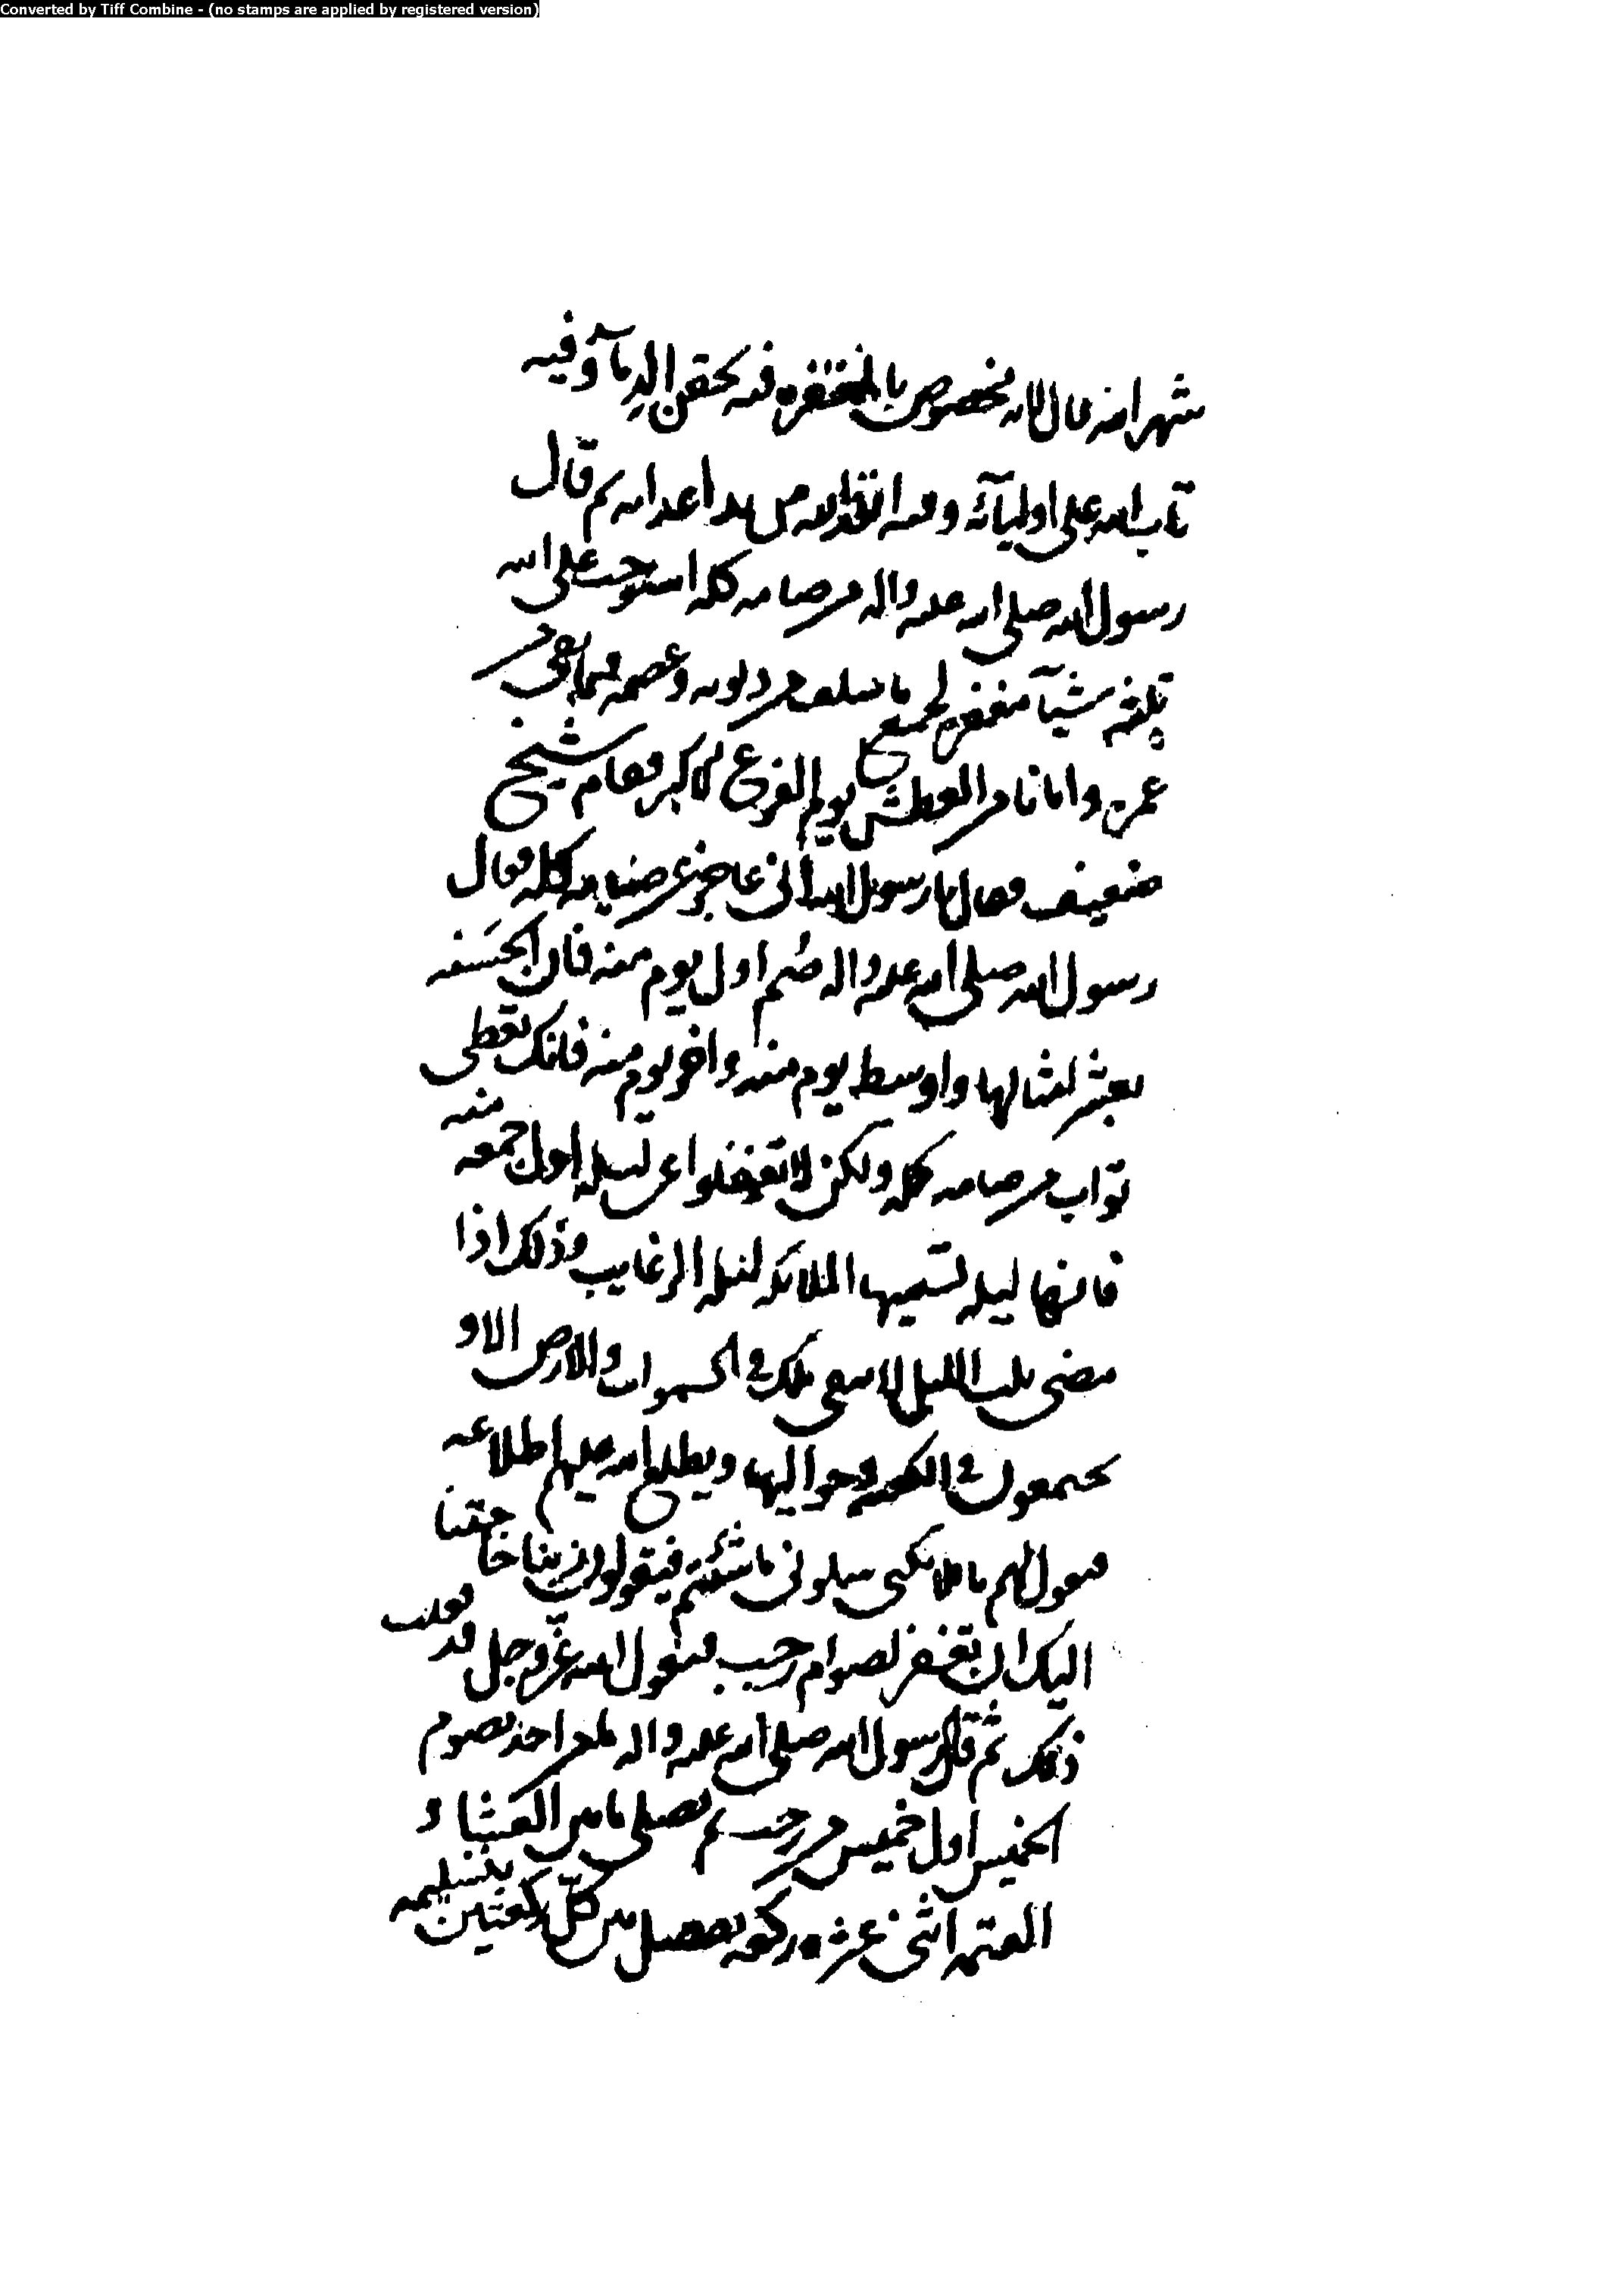 Converted by Tiff Combine - (no stamps are applied by registered version)
شهر الله قال لانه مخصوص بالمغفره فيه تحقن الدمآ وفيه
تاب الله على اوليآئه وفيه انقذهم من يد اعدائه ثم قال
رسول الله صلى الله عليه واله من صامه كله استوجب على الله
ثلثة شيآ مغفره لجميع ما سلف من ذنوبه وعصمه فيما بقى من
عمره وامانا من العطش يوم الفزع الاكبر فقام شيخ
ضعيف فقال يا رسول الله انى عاجز عن صيامه كله فقال
رسول الله صلى الله عليه واله صُم اول يوم منه فان الحسَنه
بعشر امثالها واوسط يوم منه واخر يوم منه فانك تعطى
ثواب من صامه كله ولكن لا تغفلوا عن ليله اول جمعه منه
فانها ليله تسميها الملائكه ليله الرغايب وذلك اذا
مضى ثلث الليل لا يبقى ملك فى السموات والارض الا و
يجتمعون فى الكعبه وحواليها ويطلع الله عليهم اطلاعه
فيقول لهم يا ملائكتى سلونى ما شئتم فيقولون ربنا حاجتنا
اليك ان تغفر لصوام رجب فيقول الله عزّ وجل قد فعلت
ذلك ثم قال رسول الله صلى الله عليه واله ما من احد يصوم
الخميس اول خميس من رجب ثم يصلى ما بين العشا و
العتمه اثنى عشره ركعه يفصل بين كلّ ركعتين بتسليمه